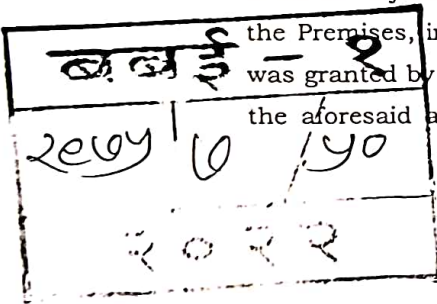 the Premises, i
बबई - १
was granted by
the aforesaid a
२९७५ ७ / ५०
२०२२